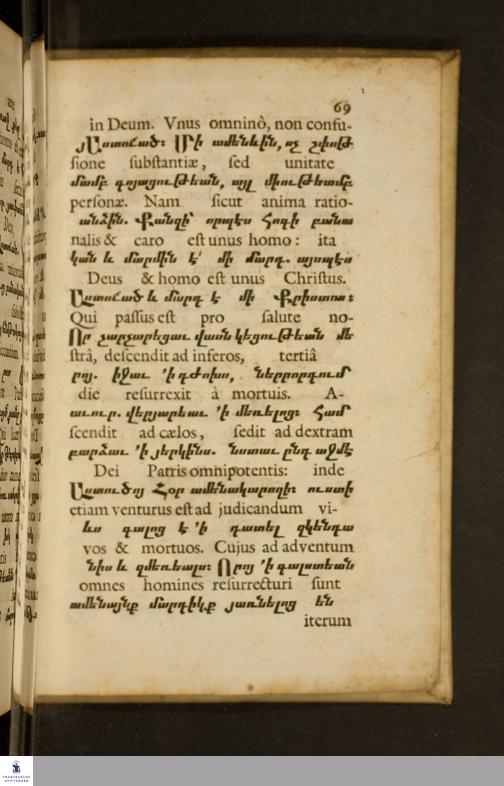 69
in Deum. Vnus omninò, non confu-
յԱստուած։ Մի ամենևին, ոչ շփոթ
sione substantiæ, sed unitate
մամբ գոյացութեան, այլ միութեամբ
personæ. Nam sicut anima ratio-
անձին. Քանզի՝ որպէս հոգի բանա
nalis & caro est unus homo: ita
կան և մարմին է՛ մի մարդ. այսպէս
Deus & homo est unus Christus.
Աստուած և մարդ է մի Քրիստոս։
Qui passus est pro salute no-
Որ չարչարեցաւ վասն կեցութեան մե
strâ, descendit ad inferos, tertiâ
րոյ. իջաւ ՚ի դժոխս, երրորդում
die resurrexit à mortuis. A-
աւուր. վերյարեաւ ՚ի մեռելոց։ Համ
scendit ad cælos, sedit ad dextram
բարձաւ ՚ի յերկինս. նստաւ ընդ աջմէ
Dei Patris omnipotentis: inde
Աստուծոյ Հօր ամենակարողի։ ուստի
etiam venturus est ad judicandum vi-
ևս գալոց է ՚ի դատել զկենդա
vos & mortuos. Cujus ad adventum
նիս և զմեռեալս։ Որոյ ՚ի գալստեան
omnes homines resurrecturi sunt
ամենայնք մարդիկք յառնելոց են
iterum